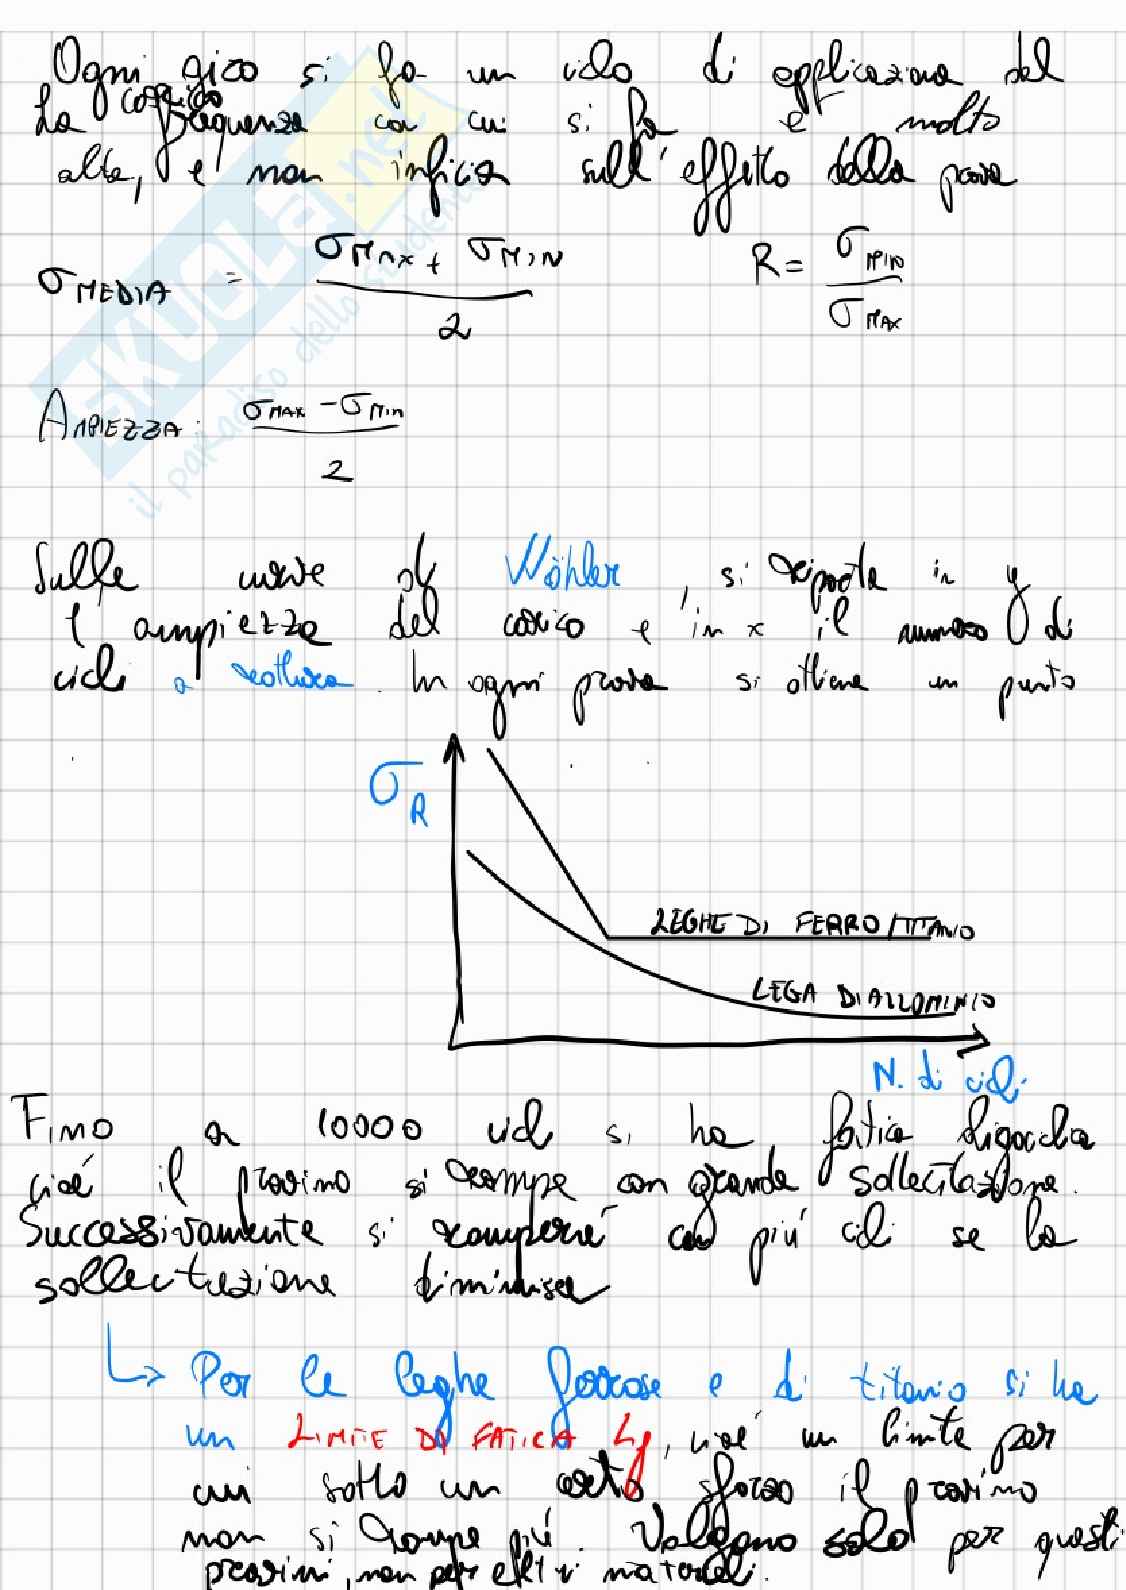 Ogni giro si fa un ciclo di applicazione del
carico
La frequenza con cui si fa è molto
alta, e non inficia sull'effetto della prova
σMEDIA = σMAX + σMIN / 2
R = σMIN / σMAX
AMPIEZZA: σMAX - σMIN / 2
Sulle curve di Wöhler, si riporta in y
l'ampiezza del carico e in x il numero di
cicli a rottura. In ogni prova si ottiene un punto
σR
LEGHE DI FERRO/TITANIO
LEGA DI ALLOMINIO
N. di cicli
Fino a 10000 cicli si ha fatica oligociclica
cioé il provino si rompe con grande sollecitazione.
Successivamente si romperà con più cicli se la
sollecitazione diminuisce
↳ Per le leghe ferrose e di titanio si ha
un LIMITE DI FATICA Lf, cioé un limite per
cui sotto un certo sforzo il provino
non si rompe più. Valgono solo per questi
provini, non per altri materiali.
SKUOLA.net
il paradiso dello studente